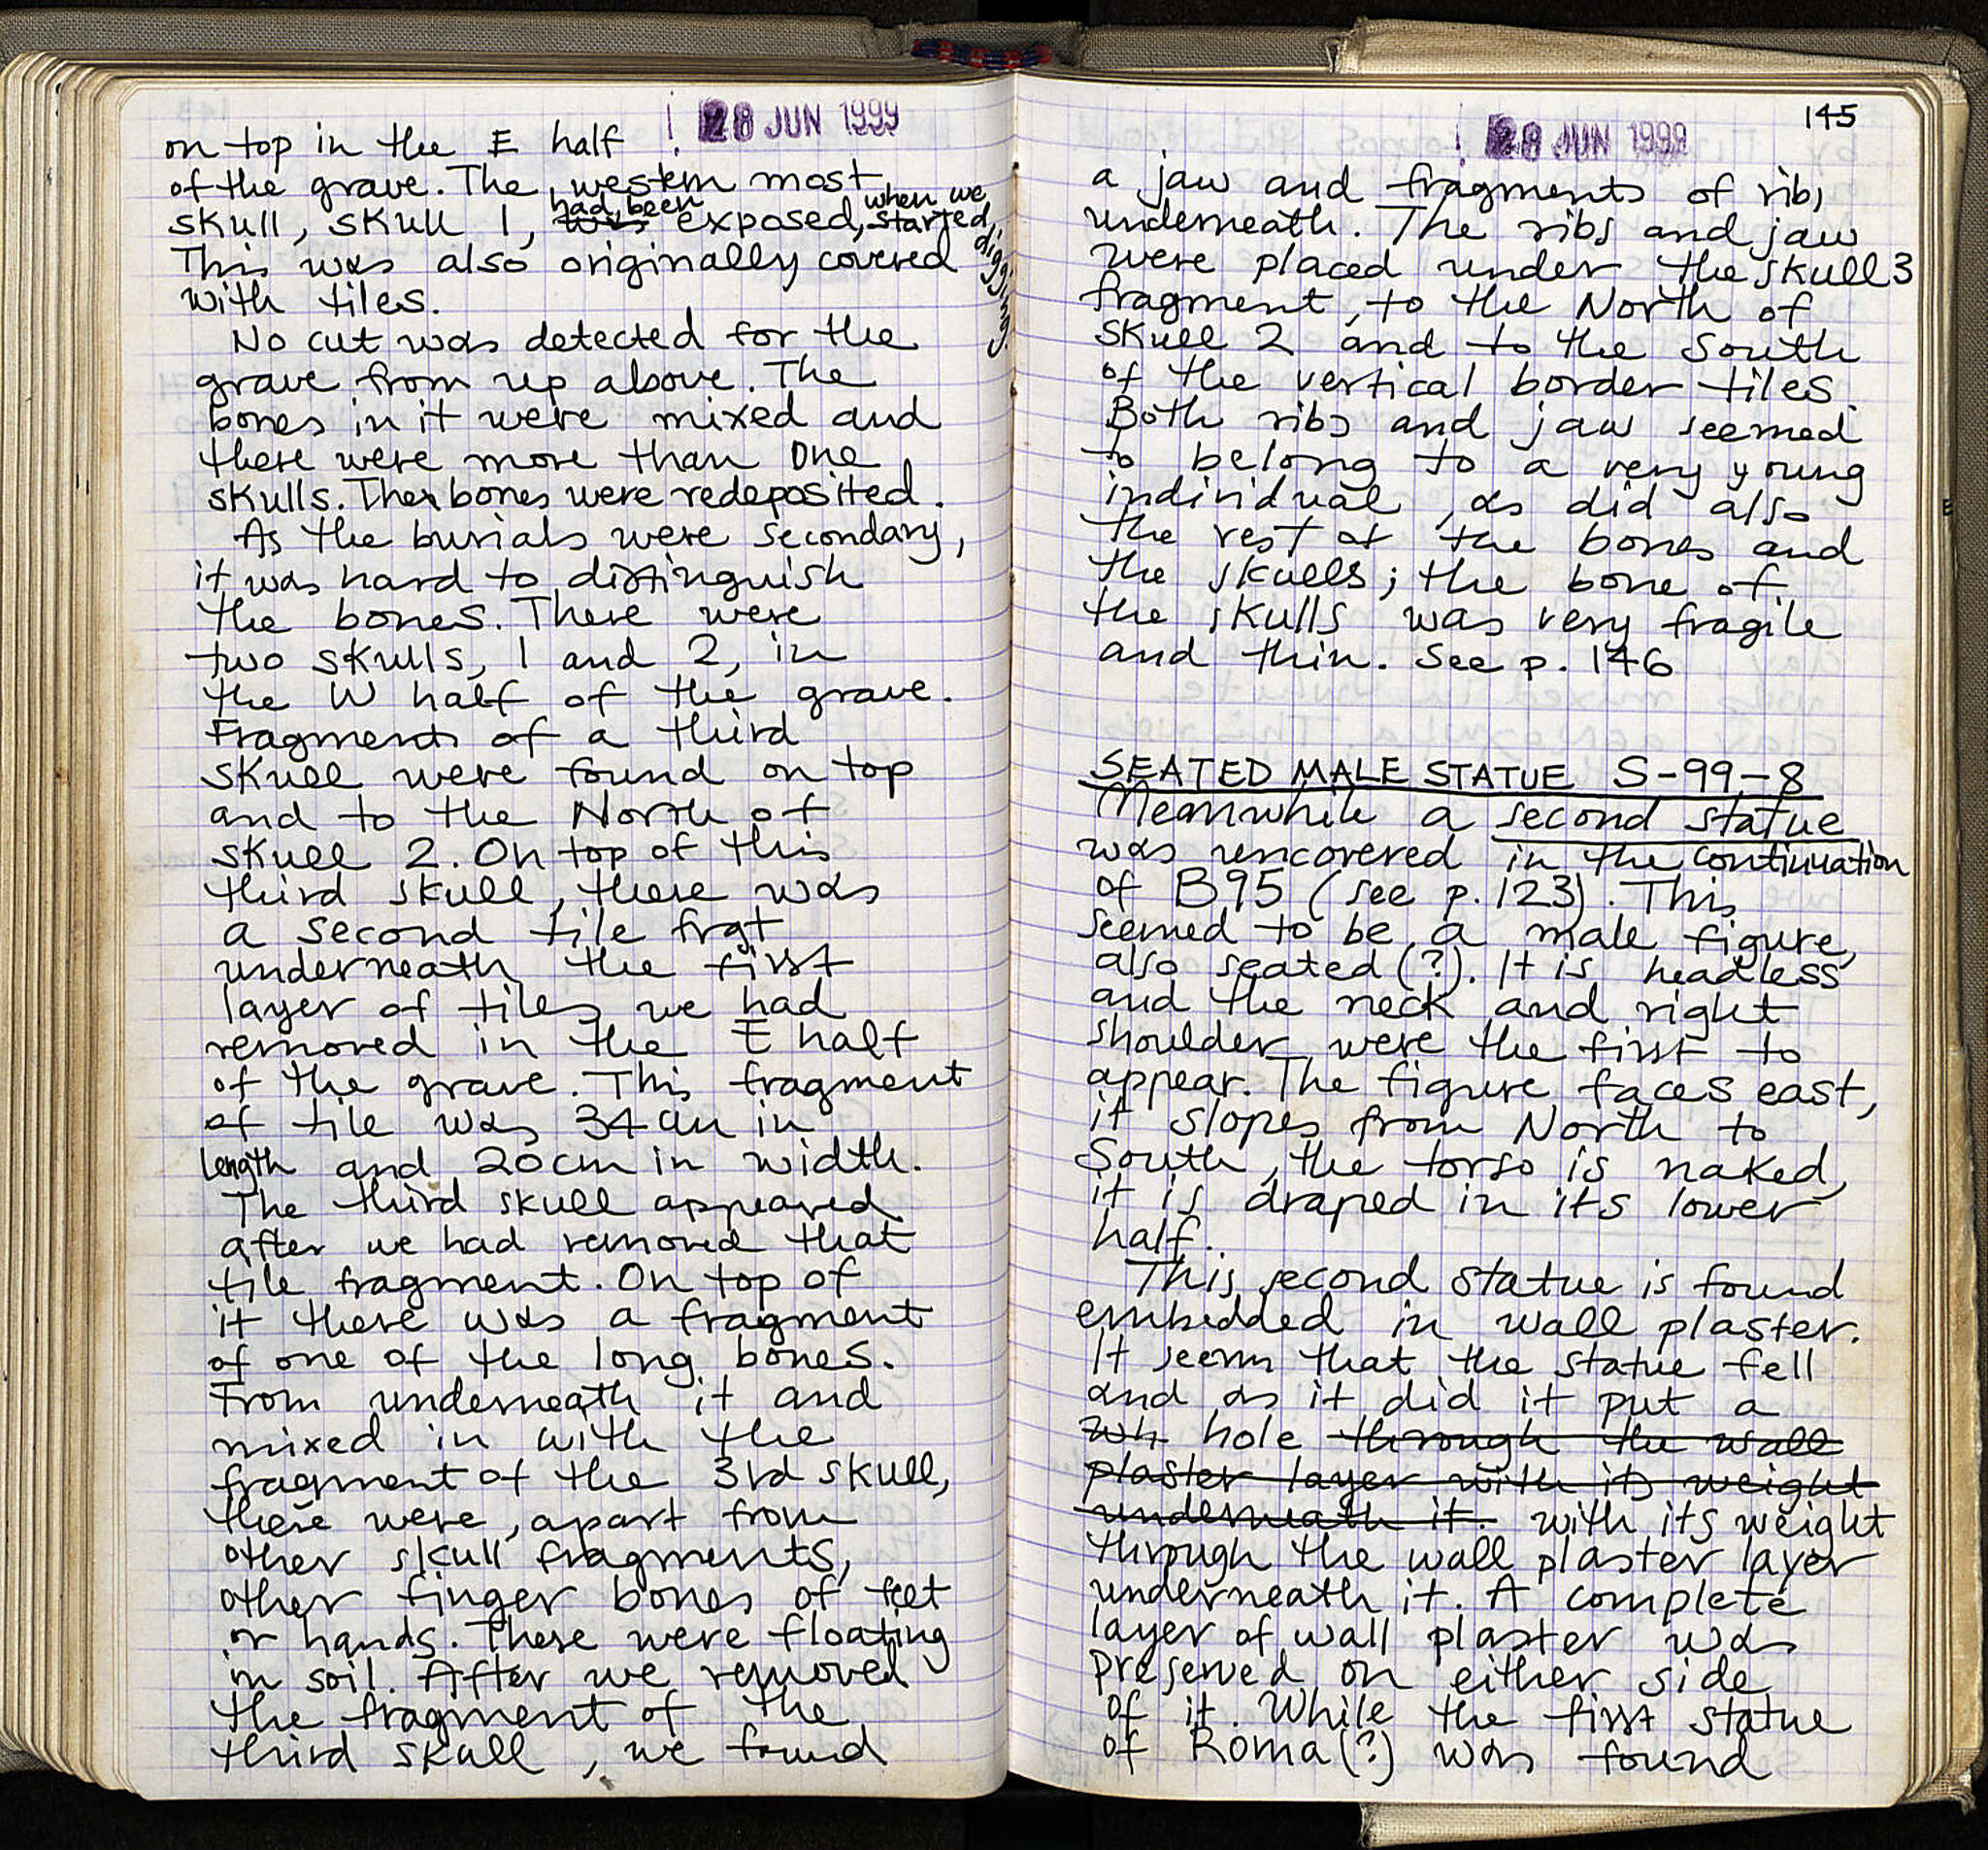 28 JUN 1999
on top in the E half
of the grave. The western most
skull, skull 1, was had been exposed, when we started digging.
This was also originally covered
with tiles.
No cut was detected for the
grave from up above. The
bones in it were mixed and
there were more than one
skulls. The bones were redeposited.
As the burials were secondary,
it was hard to distinguish
the bones. There were
two skulls, 1 and 2, in
the W half of the grave.
Fragments of a third
skull were found on top
and to the North of
skull 2. On top of this
third skull, there was
a second tile frgt
underneath the first
layer of tiles we had
removed in the E half
of the grave. This fragment
of tile was 34 cm in
length and 20cm in width.
The third skull appeared
after we had removed that
tile fragment. On top of
it there was a fragment
of one of the long bones.
From underneath it and
mixed in with the
fragment of the 3rd skull,
there were, apart from
other skull fragments,
other finger bones of feet
or hands. These were floating
in soil. After we removed
the fragment of the
third skull, we found
145
28 JUN 1999
a jaw and fragments of ribs
underneath. The ribs and jaw
were placed under the skull 3
fragment, to the North of
skull 2 and to the South
of the vertical border tiles.
Both ribs and jaw seemed
to belong to a very young
individual, as did also
the rest of the bones and
the skulls; the bone of
the skulls was very fragile
and thin. See p. 146
SEATED MALE STATUE S-99-8
Meanwhile a second statue
was uncovered in the continuation
of B95 (see p. 123). This
seemed to be a male figure,
also seated (?). It is headless
and the neck and right
shoulder were the first to
appear. The figure faces east,
it slopes from North to
South, the torso is naked,
it is draped in its lower
half.
This second statue is found
embedded in wall plaster.
It seems that the statue fell
and as it did it put a
wh hole through the wall
plaster layer with its weight
underneath it. with its weight
through the wall plaster layer
underneath it. A complete
layer of wall plaster was
preserved on either side
of it. While the first statue
of Roma (?) was found